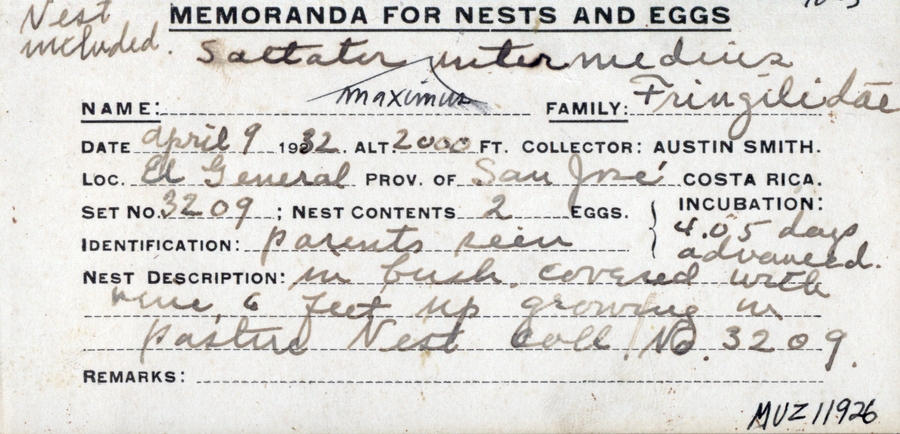 Nest
included.
MEMORANDA FOR NESTS AND EGGS
Saltator intermedius
maximus
NAME: FAMILY: Fringilidae
DATE April 9 1932. ALT 2000 FT. COLLECTOR: AUSTIN SMITH.
LOC. El General PROV. OF San José COSTA RICA.
SET No. 3209 ; NEST CONTENTS 2 EGGS.
INCUBATION:
4.05 days
advanced.
IDENTIFICATION: parents seen
NEST DESCRIPTION: in bush covered with
vine, 6 feet up growing in
pasture Nest Coll. No. 3209.
REMARKS:
MVZ 11926